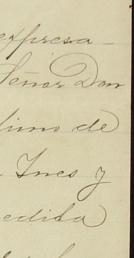 expresa
Señor Don
timo de
Ines y
edida